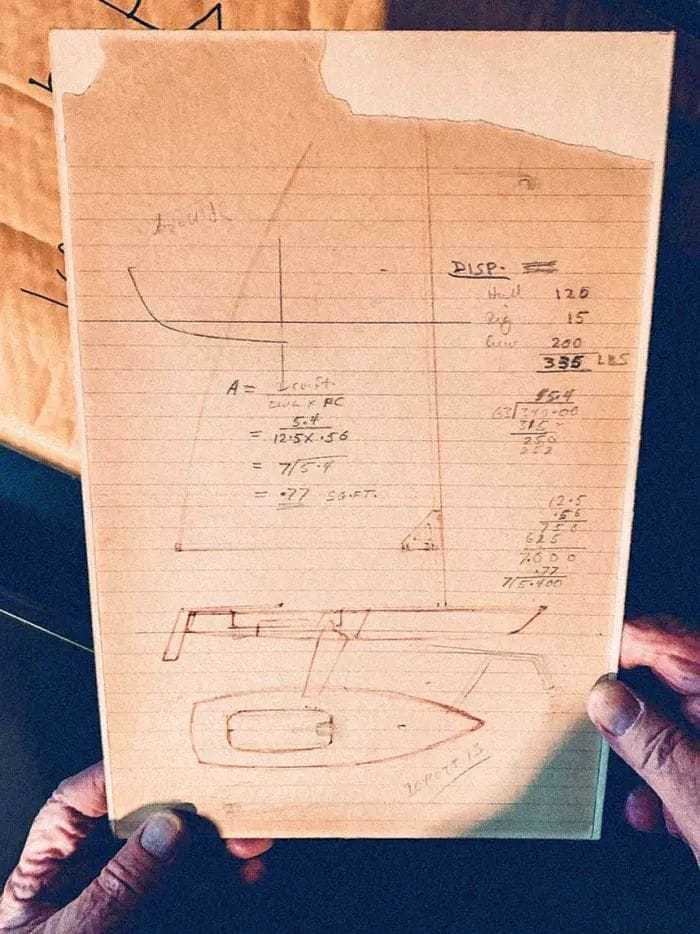 DISP.
Hull 120
Rig 15
Crew 200
335 LBS
A = cu.ft.
LWL x PC
= 5.4
12.5 x .56
= 7/5.4
= .77 SQ.FT.
5.4
63/340.00
315
250
252
12.5
.56
750
625
7.000
.77
7/5.400